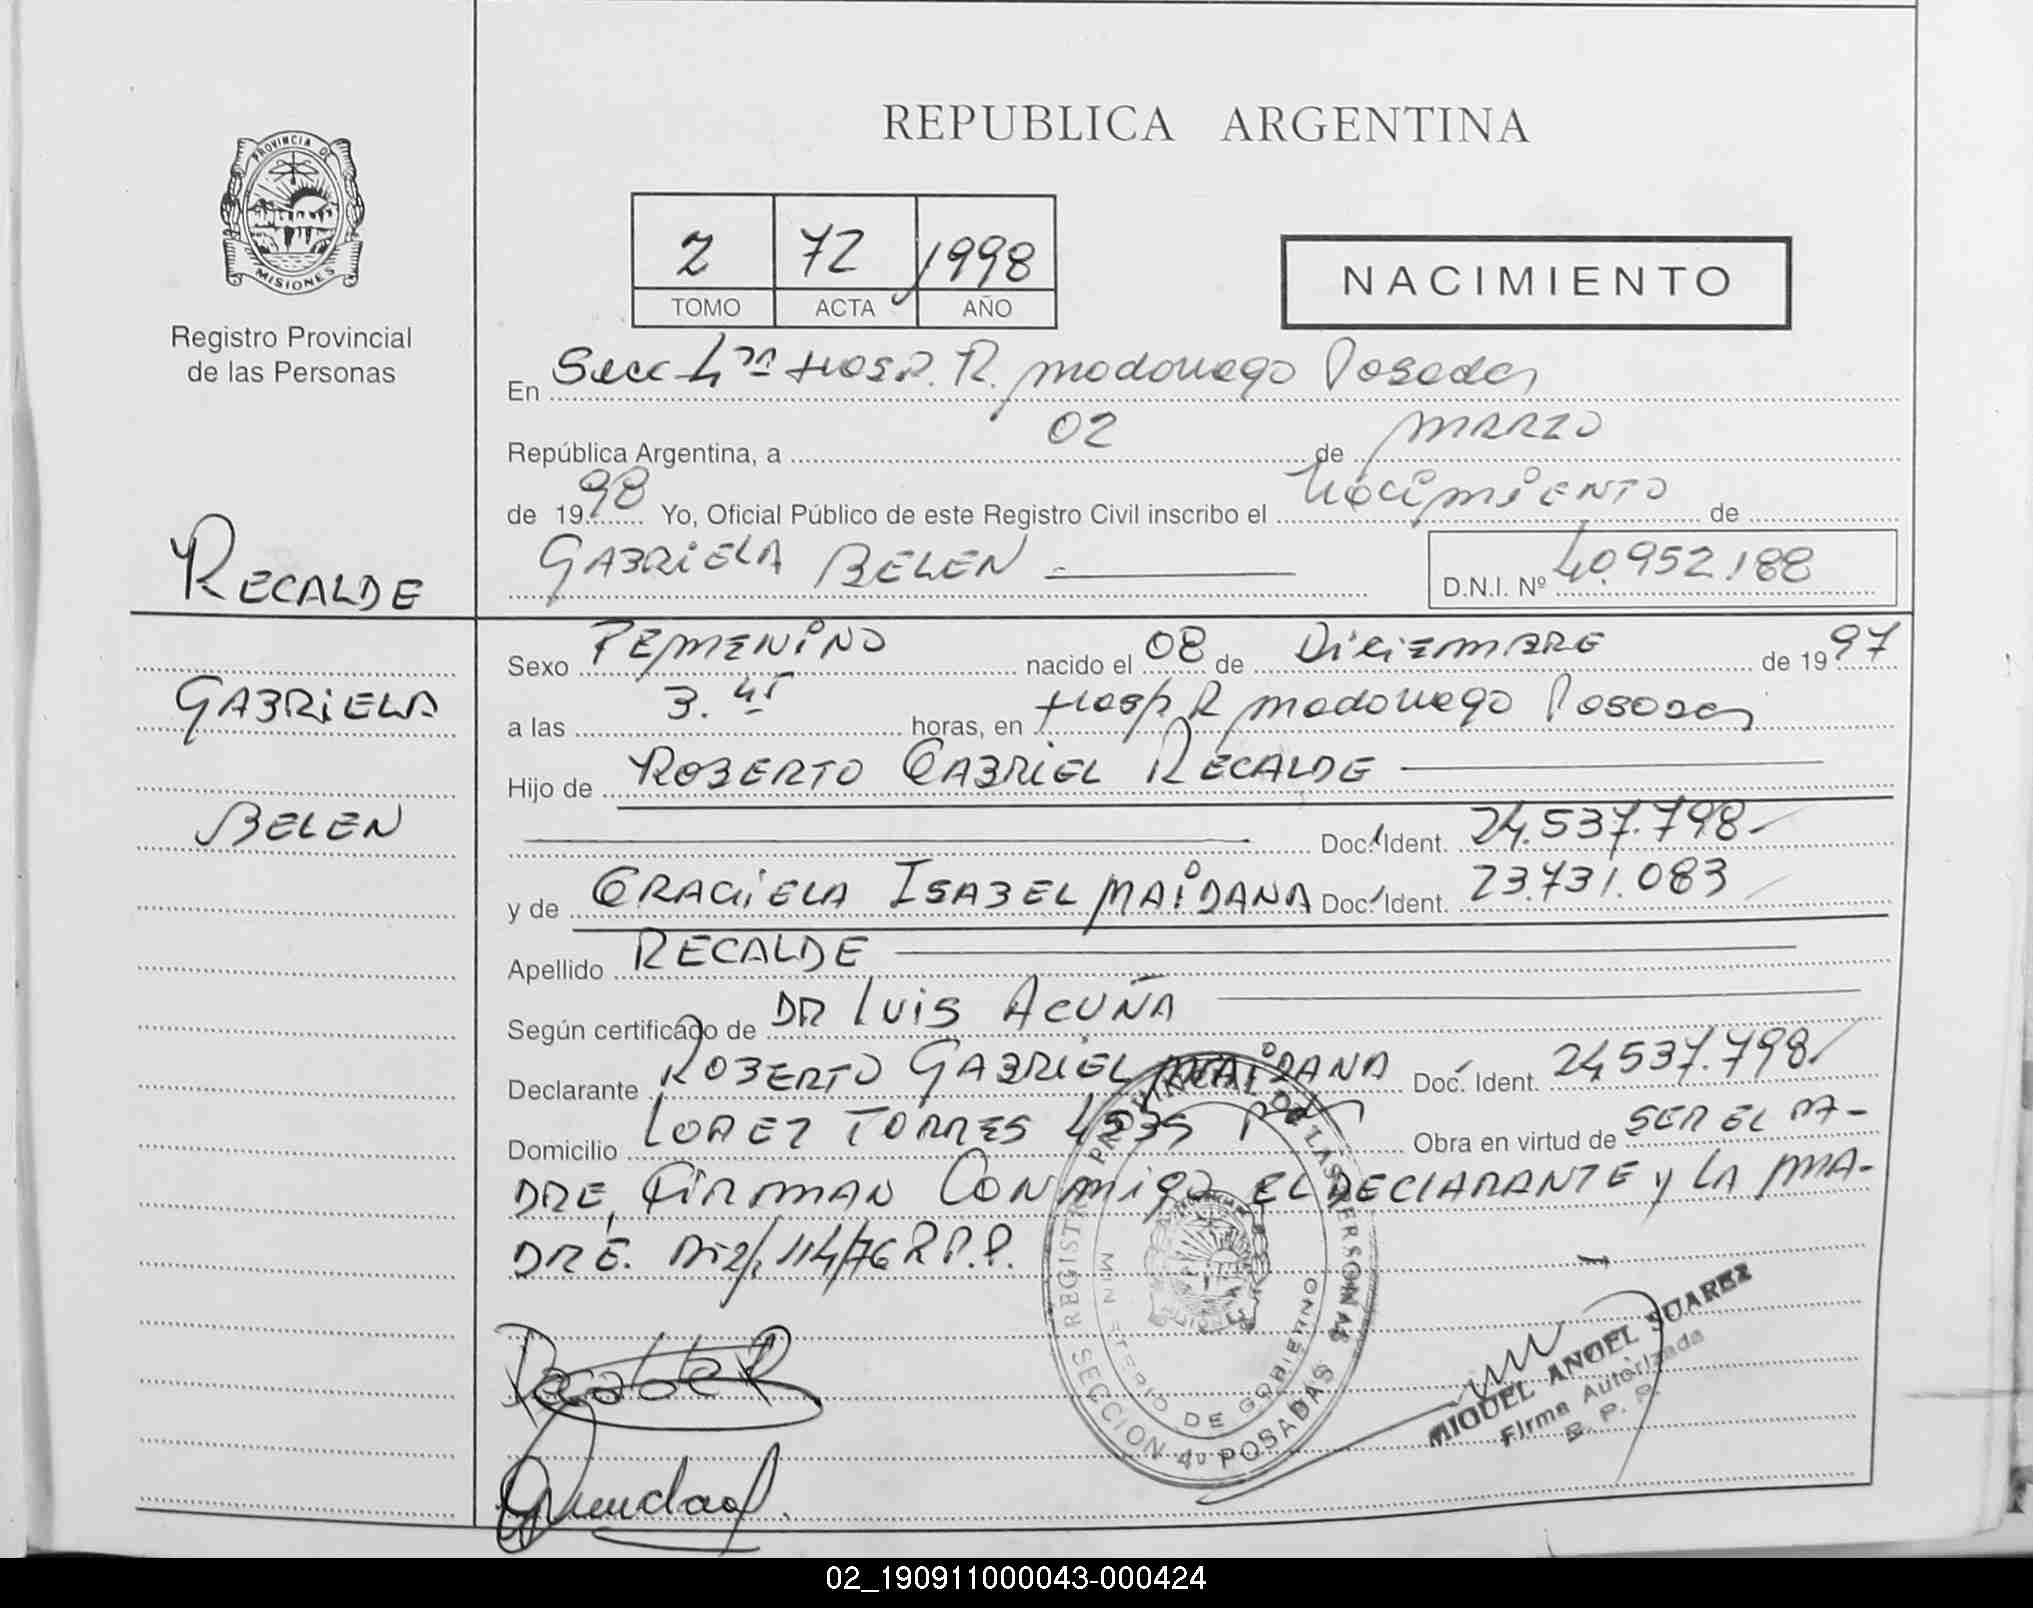 REPUBLICA ARGENTINA
PROVINCIA DE
MISIONES
Registro Provincial
de las Personas
2 72 1998
TOMO ACTA AÑO
NACIMIENTO
En Secc 4ta Hosp. R. Madariaga Posadas
República Argentina, a 02 de MARZO
de 1998 Yo, Oficial Público de este Registro Civil inscribo el Nacimiento de
GABRIELA BELEN
D.N.I. Nº 40.952.188
RECALDE
GABRIELA
BELEN
Sexo FEMENINO nacido el 08 de DICIEMBRE de 1997
a las 3.45 horas, en Hosp R Madariaga Posadas
Hijo de ROBERTO GABRIEL RECALDE
Doc. Ident. 24.537.798
y de GRACIELA ISABEL MAIDANA Doc. Ident. 23.731.083
Apellido RECALDE
Según certificado de DR LUIS ACUÑA
Declarante ROBERTO GABRIEL MAIDANA Doc. Ident. 24.537.798
Domicilio LOPEZ TORRES Obra en virtud de SER EL PA-
DRE, FIRMAN CONMIGO EL DECLARANTE y LA MA-
DRE. 114/76 R.P.P.
REGISTRO PROVINCIAL DE LAS PERSONAS
MINISTERIO DE GOBIERNO
SECCION 4a POSADAS
MIGUEL ANGEL SUAREZ
Firma Autorizada
R. P. P.
02_190911000043-000424